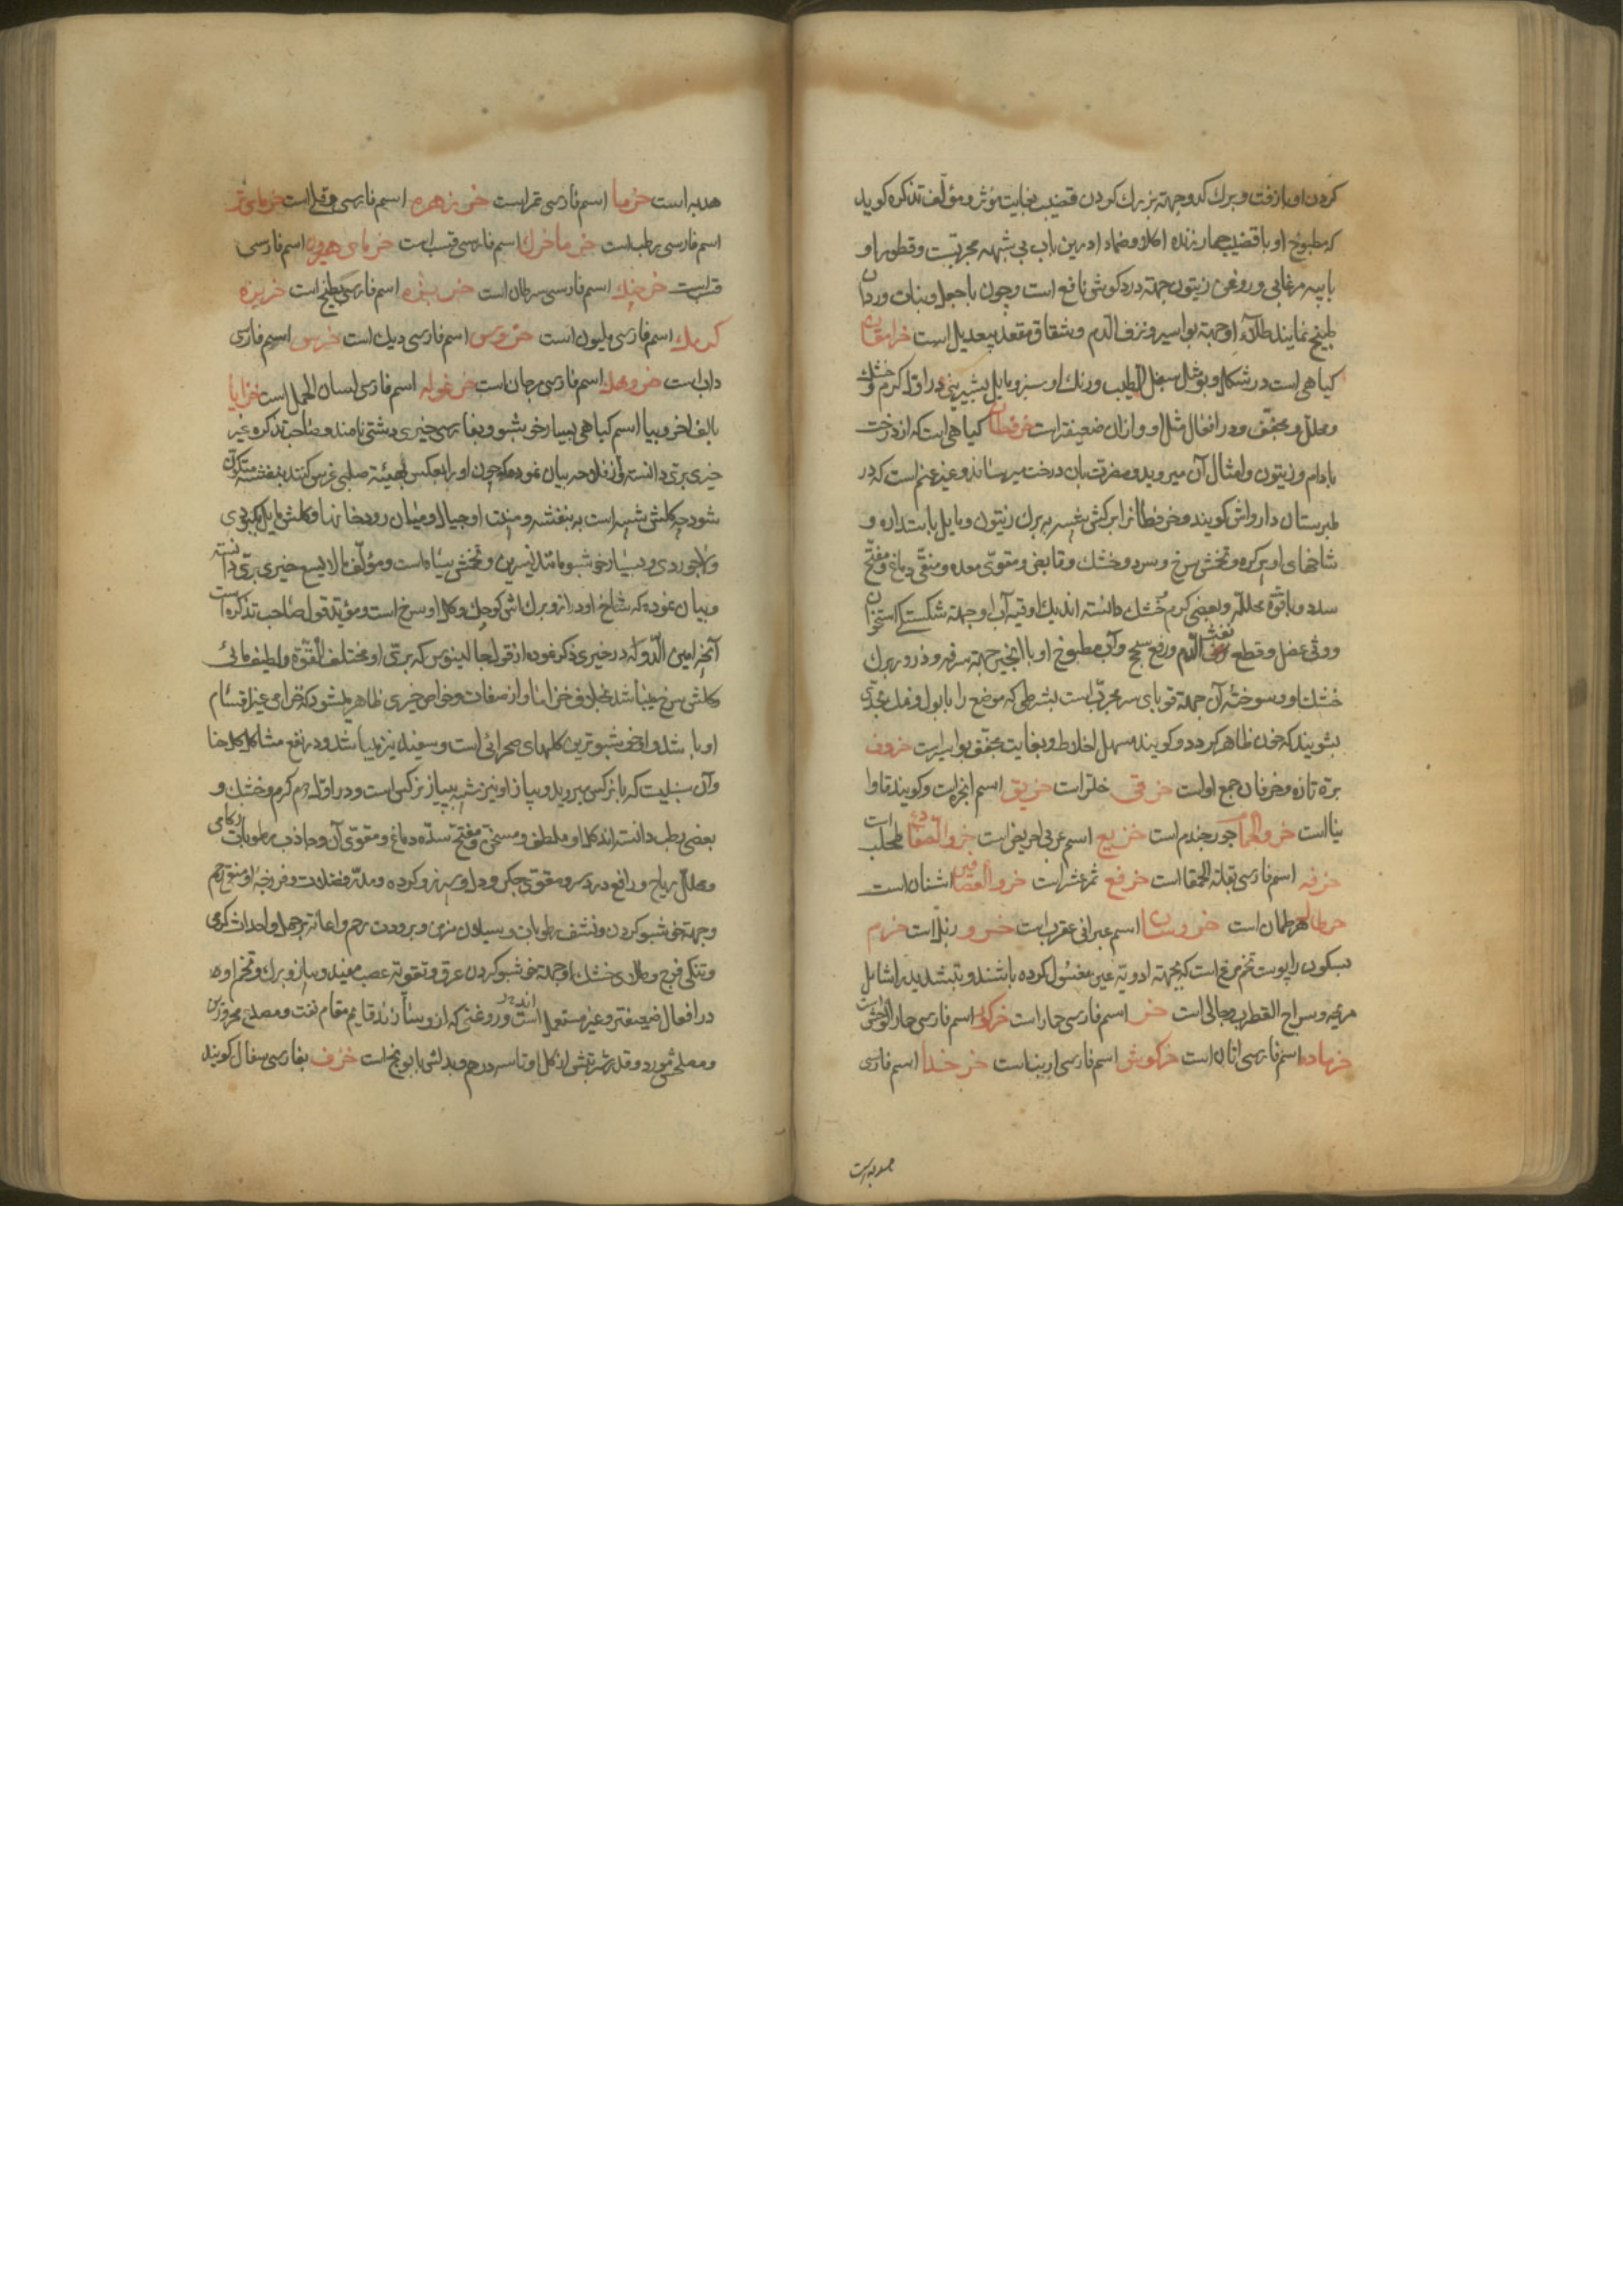 کردن او با زفت و برک کدو جهته بزرك کردن قضیب بغایت مؤثر و مؤلف تذکره کوید
که مطبوخ او با قضیب حمار زنده اکلا و ضمادا درین باب بی شبهه مجربست و قطور او
با پیه مرغابی و روغن زیتون جهته درد کوش نافع است و چون با جعل و بنات وردان
طبیخ نمایند طلاء او جهته بواسیر و نزف الدم و شقاق مقعد بیعدیل است خرامقان
کیاهی است در شکل و بو مثل سنبل الطیب و رنك او سبز و مایل بشیرینی در اول کرم و خشك
و محلل و مجفف و در افعال مثل او و ازان ضعیفتر است خرفطان کیاهی است که از درخت
بادام و زیتون و امثال آن میروید و مضرت بان درخت میرساند و غیر عنم است که در
طبرستان دارواش کویند و خرفطان را برکش شبیه به برك زیتون و مایل باستداره و
شاخهای او پر کره و تخمش سرخ و سرد و خشك و قابض و مقوی معده و منقی دماغ و مفتح
سدد و با قوة محلله و بعضی کرم خشك دانسته اند یك اوقیه آب او جهته شکستکی استخوان
و وثی عضل و قطع نفث الدم و رفع سحج و آب مطبوخ او با انجیر جهته سرفه و ذرور برك
خشك او و سوخته آن جهته قوبای سر مجرب است بشرطی که موضع را با بول و نمل بحدی
بشویند که خون ظاهر کردد و کویند مسهل اخلاط و بغایت مجفف بواسیر است خروف
برة تازه و خرفان جمع اوست خرقی خلر است خریق اسم انجره است و کویند قاوا
نیا است خرو الحمام جورجندم است خریع اسم عربی احریض است خرو الضفادع طحلب است
خرفه اسم فارسی بقلة الحمقا است خرفع ثمر عشر است خرو العصافیر اشنان است
خرطال هرطمان است خروسان اسم عبرانی عقرب است خرو زبل است خرم
بسکون را پوست تخم مرغ است که بجهته ادویه عین مغسول کرده باشند و بتشدید را شامل
مریحه و سراج القطرب و جالی است خر اسم فارسی حمار است خرکور اسم فارسی حمار الوحش است
خر ماده اسم فارسی اتان است خرکوش اسم فارسی ارنب است خر خدا اسم فارسی
هدبه است
هدبه است خرما اسم فارسی تمر است خر زهره اسم فارسی دفلی است خرمای تر
اسم فارسی رطب است خرما خرك اسم فارسی قسب است خرمای هیرون اسم فارسی
قسب است خرچنك اسم فارسی سرطان است خربزه اسم فارسی بطیخ است خربزه
کرمك اسم فارسی ملیون است خروس اسم فارسی دیك است خرس اسم فارسی
داب است خروهك اسم فارسی مرجان است خرغوله اسم فارسی لسان الحمل است خزایا
بالف آخر و بیا اسم کیاهی بسیار خوشبو و بفارسی خیری دشتی نامند و صاحب تذکره غیر
خیری بری دانسته و از فلاحه بیان نموده که چون او را بعکس بهیئة صلیبی غرس کنند بنفشه متکون
شود چه کلش شبیه است به بنفشه و منبت او جبال و میان رودخانها و کلش مایل بکبودی
و لاجوردی و بسیار خوشبو مانند نسرین و تخمش سیاه است و مؤلف مالایسع خیری بری دانسته
و بیان نموده که شاخ او دراز و برك اش کوچك و کل او سرخ است و مؤید قول صاحب تذکره است
آنچه امین الدوله در خیری ذکر نموده از قول جالینوس که بری او مختلف القوة و لطیف مائی
کلش سرخ میباشد بخلاف خزاما و از صفات و خواص خیری ظاهر میشود که خزامی غیر اقسام
او باشد و او خوشبوترین کلهای صحرائی است و سفید نیز میباشد و در نفع مشاکل کل حنا
و آن سنبلیست که با نرکس میروید و پیاز او نیز شبیه بپیاز نرکس است و در اول دوم کرم و خشك و
بعضی رطب دانسته اند کل او ملطف و مسخن و مفتح سده دماغ و مقوی آن و جاذب رطوبات زکامی
و محلل ریاح و رافع درد سر و مقوی جکر و دل و سپرز و کرده و مدر فضلات و فرزجه او منقی رحم
و جهته خوشبو کردن و نشف رطوبات و سیلان مزمن و برودت رحم و اعانت بر حمل و احداث کرمی
و تنکی فرج و طلای خشك او جهته خوشبو کردن عرق و تقویة عصب مفید و پیاز و برك و تخم او
در افعال ضعیفتر و غیر مستعمل است و روغنی که از و سازند قایم مقام نفت و مصدع محرورین
و مصلحش مورد و قدر شربتش از کل او تا سه درهم و بدلش بابونج است خزف بفارسی سفال کویند